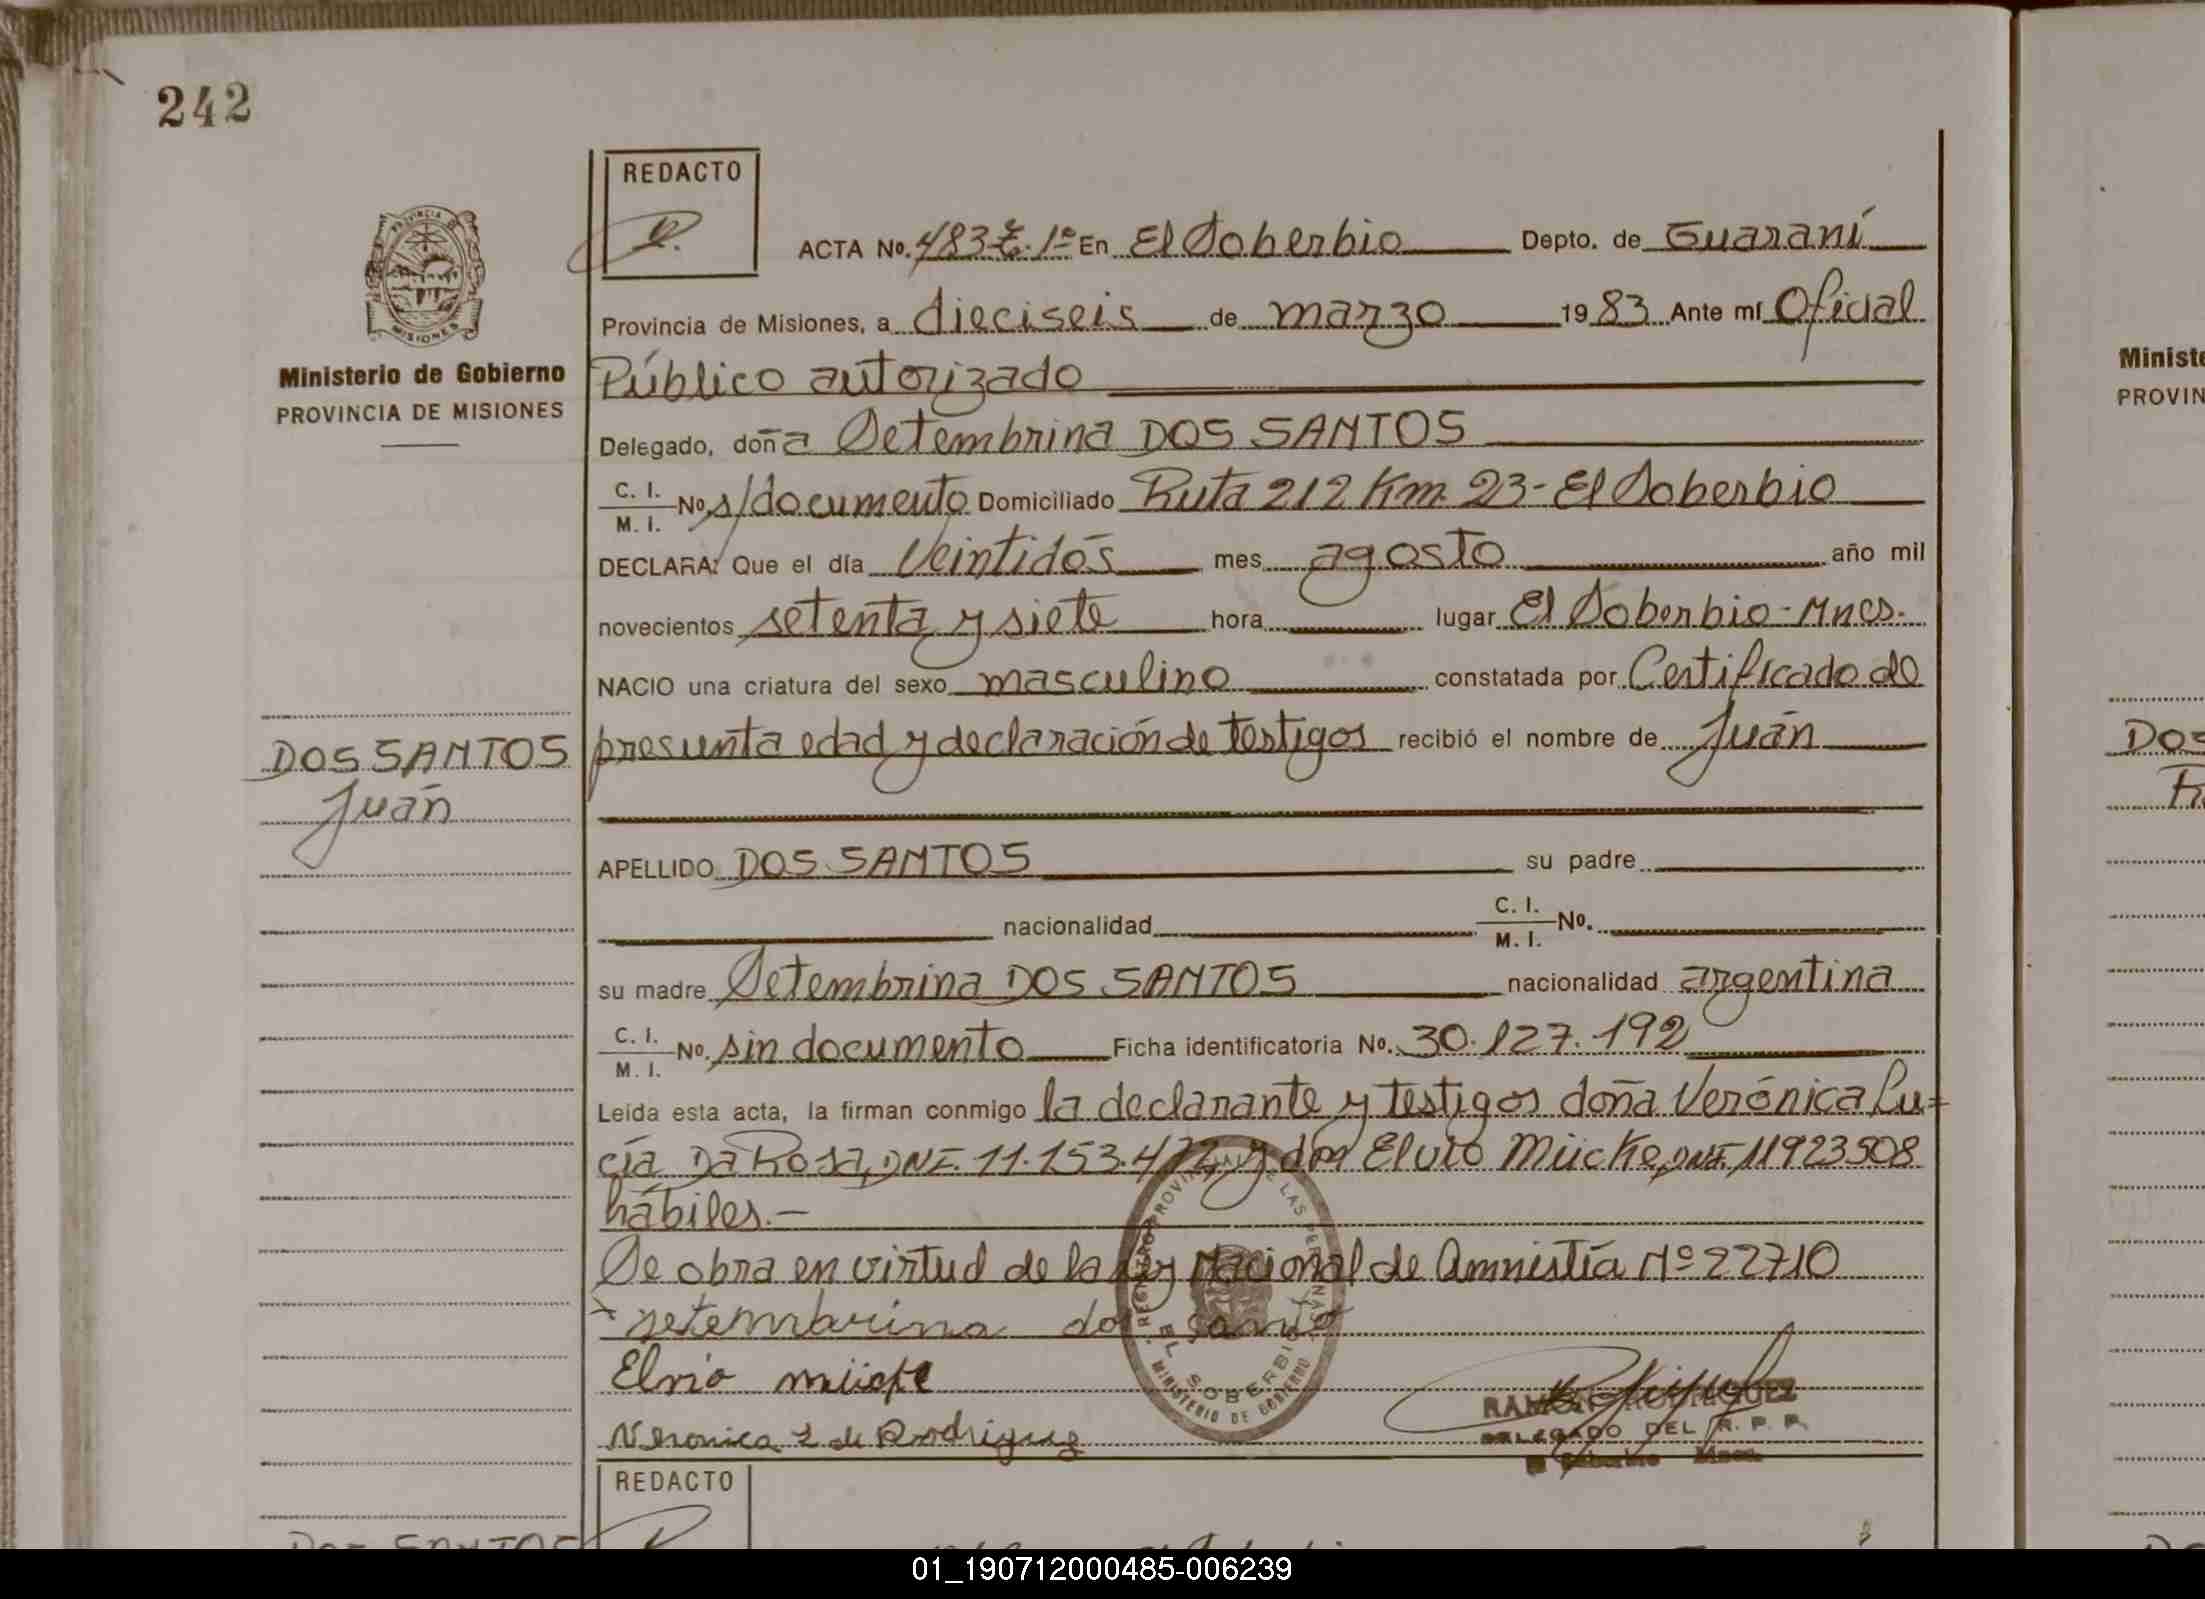 242
REDACTO
ACTA No. 483 t. 1º En El Soberbio Depto. de Guaraní
Provincia de Misiones, a dieciseis de marzo 1983 Ante mí Oficial
Público autorizado
Delegado, doña Setembrina DOS SANTOS
C. I.
M. I. No. s/documento Domiciliado Ruta 212 Km. 23 - El Soberbio
DECLARA: Que el día Veintidós mes agosto año mil
novecientos setenta y siete hora lugar El Soberbio - Mnes.
NACIO una criatura del sexo masculino constatada por Certificado de
presunta edad y declaración de testigos recibió el nombre de Juán
APELLIDO DOS SANTOS su padre
nacionalidad C. I.
M. I. No.
su madre Setembrina DOS SANTOS nacionalidad argentina
C. I.
M. I. No. sin documento Ficha identificatoria No. 30.127.192
Leída esta acta, la firman conmigo la declarante y testigos doña Verónica Lu=
cía Da Rosa, DNI. 11.153.472 y don Elvio Mücke, DNI. 11923508
hábiles.-
Se obra en virtud de la Ley Nacional de Amnistía Nº 22710
setembrina dos santo
Elvio mücke
Veronica L de Rodriguez
RAMON RODRIGUEZ
DELEGADO DEL R. P. P.
El Soberbio Mnes.
REGISTRO PROVINCIAL DE LAS PERSONAS
EL SOBERBIO
MINISTERIO DE GOBIERNO
PROVINCIA DE
MISIONES
Ministerio de Gobierno
PROVINCIA DE MISIONES
DOS SANTOS
Juán
REDACTO
DOS SANTOS
Ministe
PROVIN
DOS
01_190712000485-006239